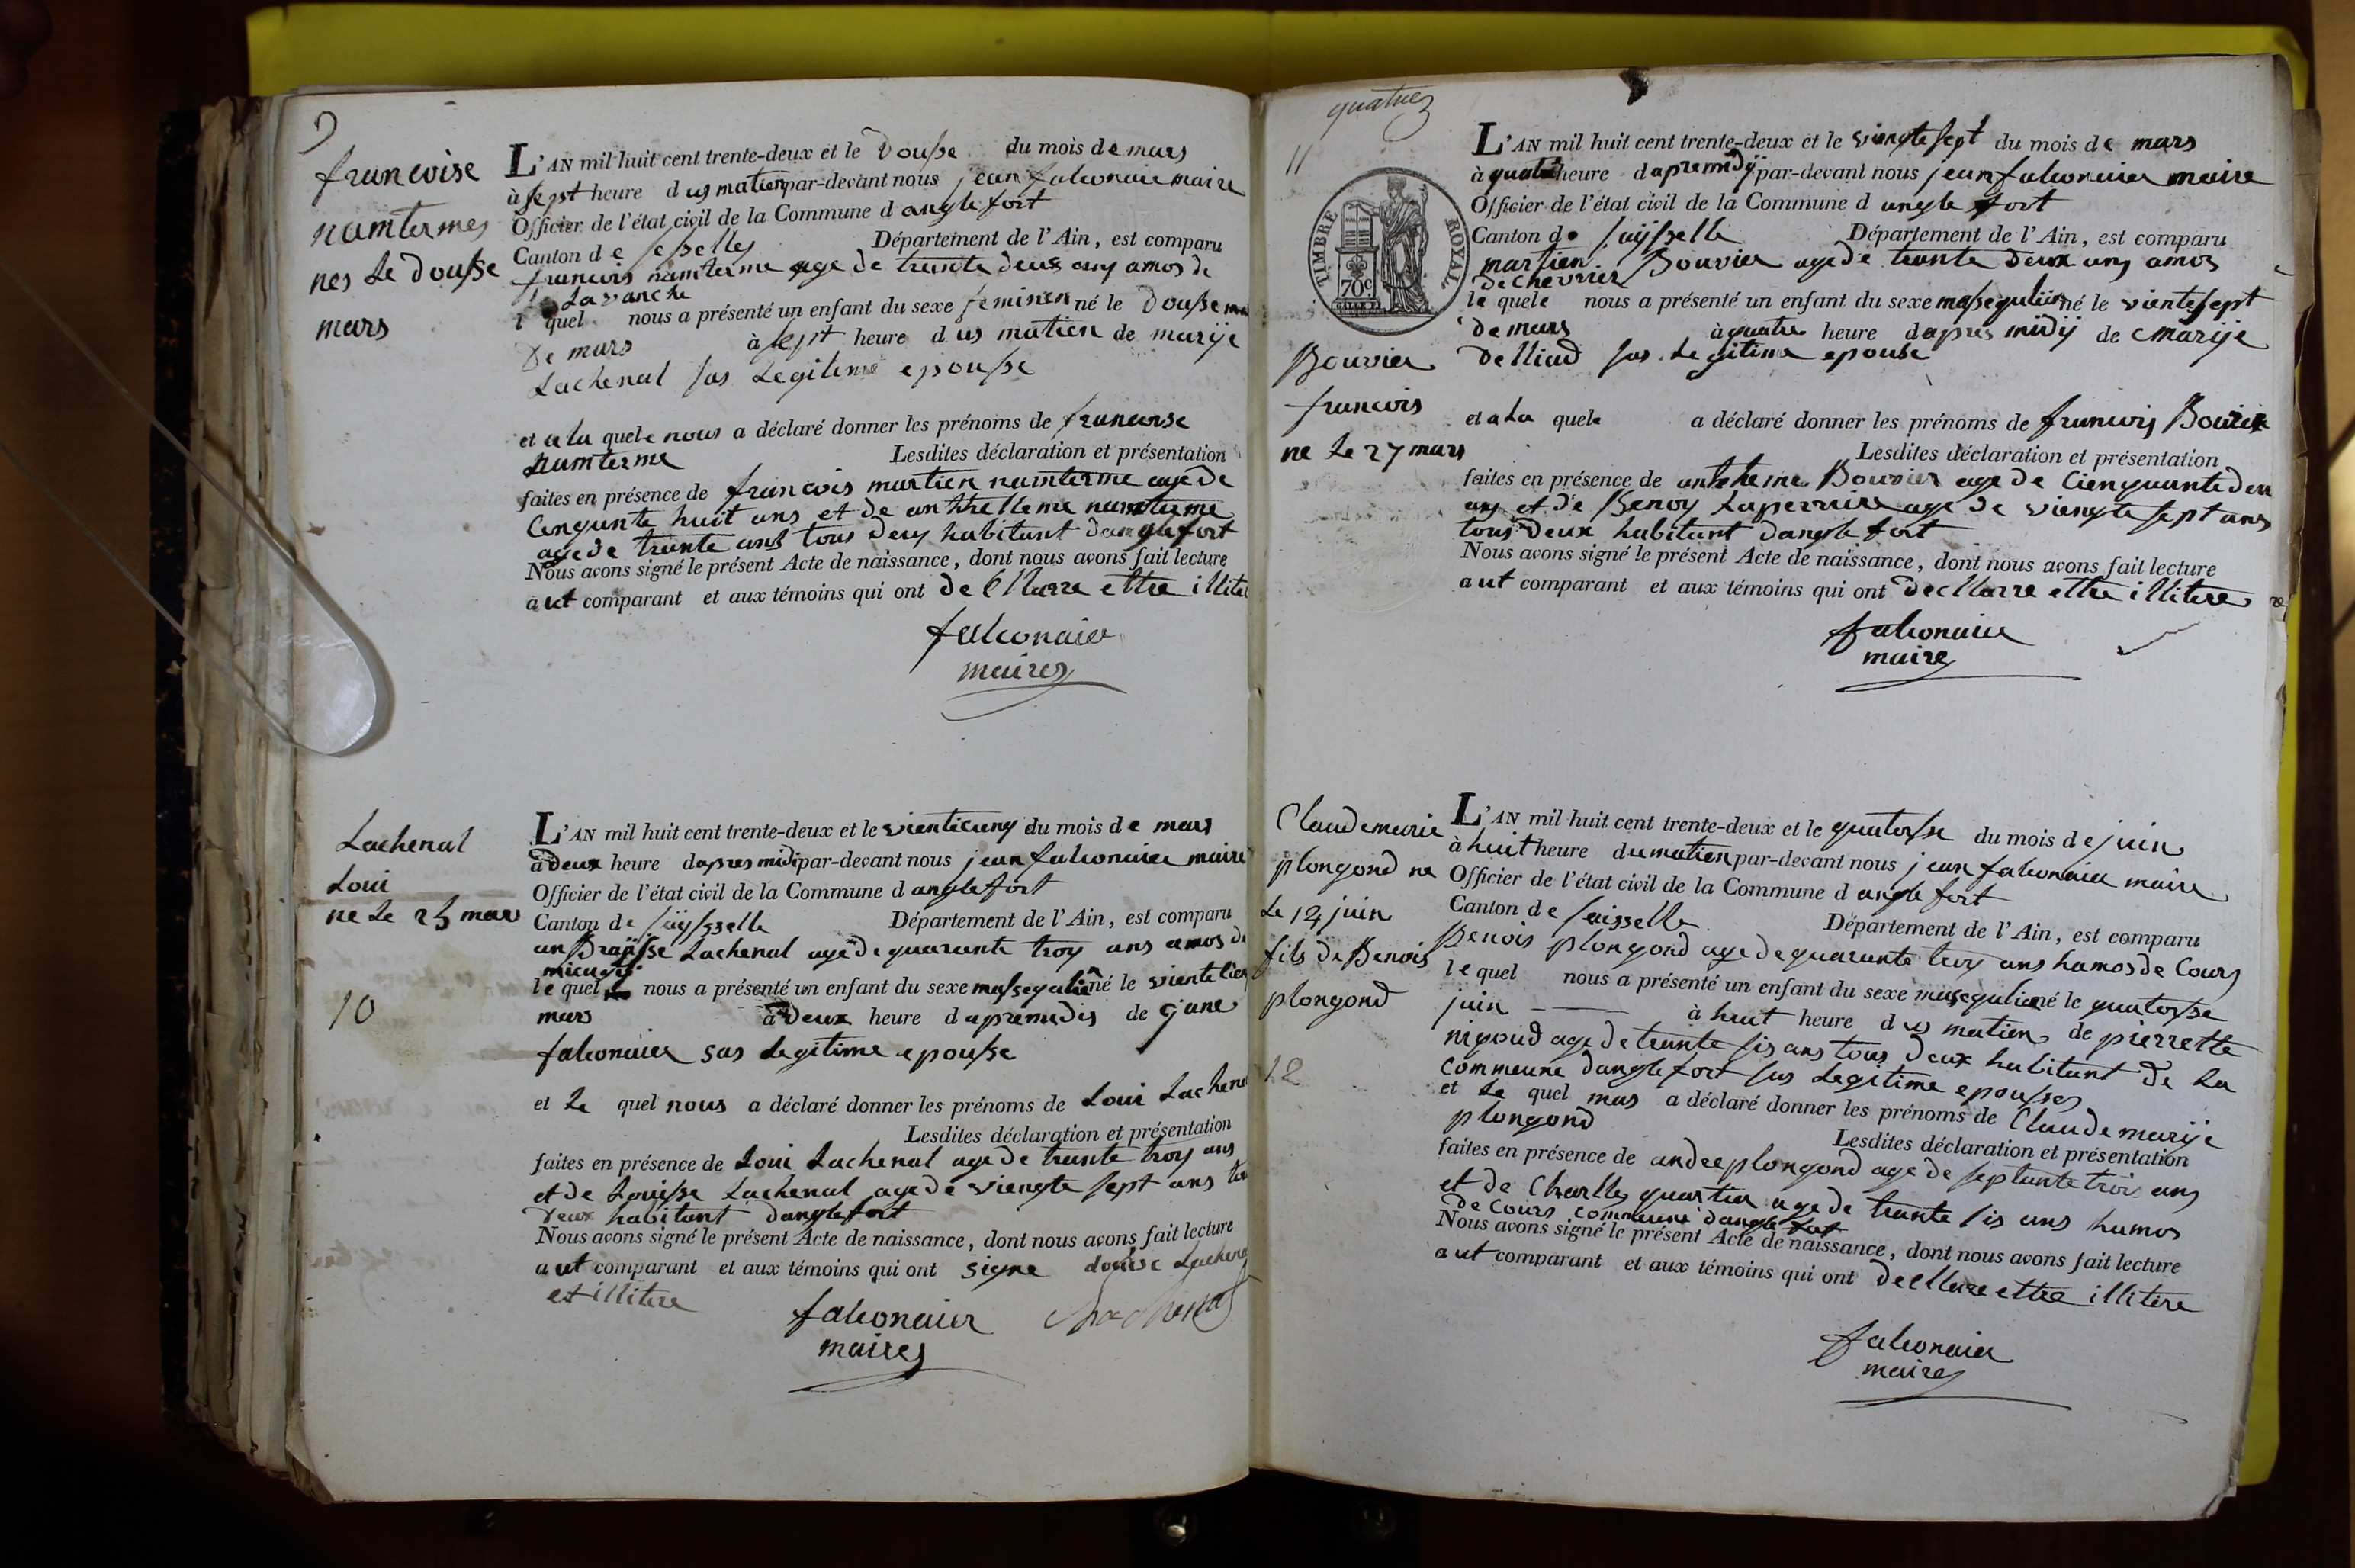 9
francoise
namtermes
nes Le dousse
mars
L'AN mil huit cent trente-deux et le Dousse du mois de mars
à sept heure dus matien par-devant nous jean falconaie maire
Officier de l'état civil de la Commune d anglefort
Canton de sesselles Département de l'Ain, est comparu
francois namterme age de trante deux ans amos de
La vanche
l quel nous a présenté un enfant du sexe feminen né le Dousse
De mars à sept heure dus matien de marije
Lachenal sas Legitime epousse
et a la quele nous a déclaré donner les prénoms de francoise
namterme Lesdites déclaration et présentation
faites en présence de francois martien namterme age de
Cenqunte huit ans et de anthelleme namterme
age de trante ans tous deux habitant danglefort
Nous avons signé le présent Acte de naissance, dont nous avons fait lecture
aut comparant et aux témoins qui ont de Cllarre ettre illite
falconaier
maires
Lachenal
Loui
ne Le 25 mars
10
L'AN mil huit cent trente-deux et le vienticinq du mois de mars
à deux heure dapres midi par-devant nous jean falconaier maire
Officier de l'état civil de la Commune d anglefort
Canton de saysselle Département de l'Ain, est comparu
anbraisse Lachenal age de quarante troy ans amos de
le quel nous a présenté un enfant du sexe massegulien né le viente
mars à Deux heure dapremidis de Gjane
falconaier sas Legitime epousse
et Le quel nous a déclaré donner les prénoms de Loui Lachenal
Lesdites déclaration et présentation
faites en présence de Loui Lachenal age de trante troy ans
et de Louisse Lachenal age de viengte sept ans tou
deux habitant danglefort
Nous avons signé le présent Acte de naissance, dont nous avons fait lecture
aut comparant et aux témoins qui ont signe Louise Lachenal
et illitere
falconaier
maires
quatue
11
TIMBRE ROYAL
70c
Bouvier
francois
ne Le 27 mars
L'AN mil huit cent trente-deux et le viengtesept du mois de mars
à quatre heure dapremidij par-devant nous jean falconaier maire
Officier de l'état civil de la Commune d angle fort
Canton de saysselle Département de l'Ain, est comparu
martien Bouvier age de trante Deux ans amos
De chevrier
le quele nous a présenté un enfant du sexe massegulien né le vientesept
de mars à quatre heure dapres midij de Marije
Delliaud sas Legitime epouse
et a La quele a déclaré donner les prénoms de francois Bouvier
Lesdites déclaration et présentation
faites en présence de antheme Bouvier age de Cienquante deu
ans et de Benoy Laperrire age de viengte sept ans
tous Deux habitant dangle fort
Nous avons signé le présent Acte de naissance, dont nous avons fait lecture
aut comparant et aux témoins qui ont decllarre ettre illitere
falconaier
maire
Claudemarie
plongond ne
Le 14 juin
fils de Benois
plongond
12
L'AN mil huit cent trente-deux et le quatorsse du mois de juin
à huit heure dumatien par-devant nous jean falconaier maire
Officier de l'état civil de la Commune d angle fort
Canton de saisselle Département de l'Ain, est comparu
Benois plongond age de quarante troy ans hamos de Cours
le quel nous a présenté un enfant du sexe masegulien né le quatorsse
juin à huit heure dus matien de pierrette
nigoud age de trante sis ans tous deux habitant de La
Commeune dangle fort sas Legitime epousses
et Le quel mas a déclaré donner les prénoms de Claude marije
plongond Lesdites déclaration et présentation
faites en présence de andre plongond age de septante trois ans
et de Charlles quartier age de trante sis ans hamos
De Cours commeune dangle fort
Nous avons signé le présent Acte de naissance, dont nous avons fait lecture
aut comparant et aux témoins qui ont decllare ettre illitere
falconaier
maire